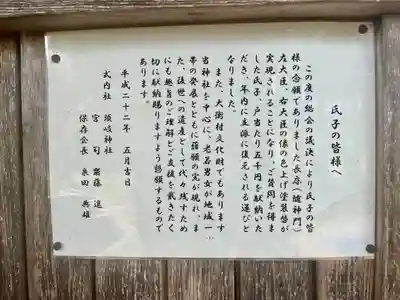 氏子の皆様へ
この度の総会の議決により氏子の皆
様の念願でありました長床（随神門）
左大臣、右大臣の像の色上げ塗装替が
実現されることになり、ご賛同を得ま
した氏子、戸当たり五千円を献納いた
だき、年内に立派に復元される運びと
なりました。
また、大衡村文化財でもあります
当神社を中心に、老若男女が地域一
帯の発展とともに諸願の実が現れ、ま
た、後世への遺産として代々残すため
にも趣旨のご理解とご支援を戴きたく
切に献納賜りますよう懇願するもので
あります。
平成二十二年 五月吉日
式内社 須岐神社
宮司 齋藤 進
保存会長 泉田 典雄